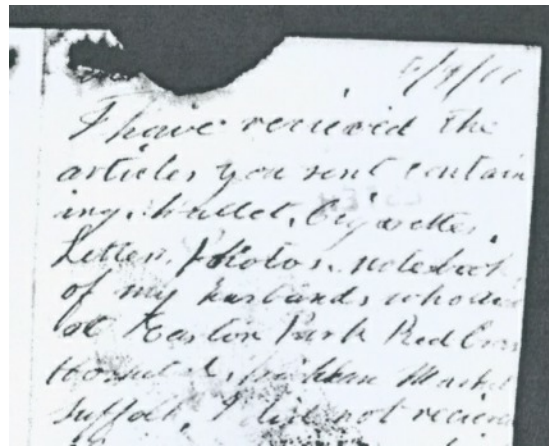 I have recieved the
articles you sent contain
ing, wallet, Cigarettes,
Letters, Photos, notebook
of my husbands who died
at Easton Park Red Cross
Hospital, Wickham Market
Suffolk, I did not recieve